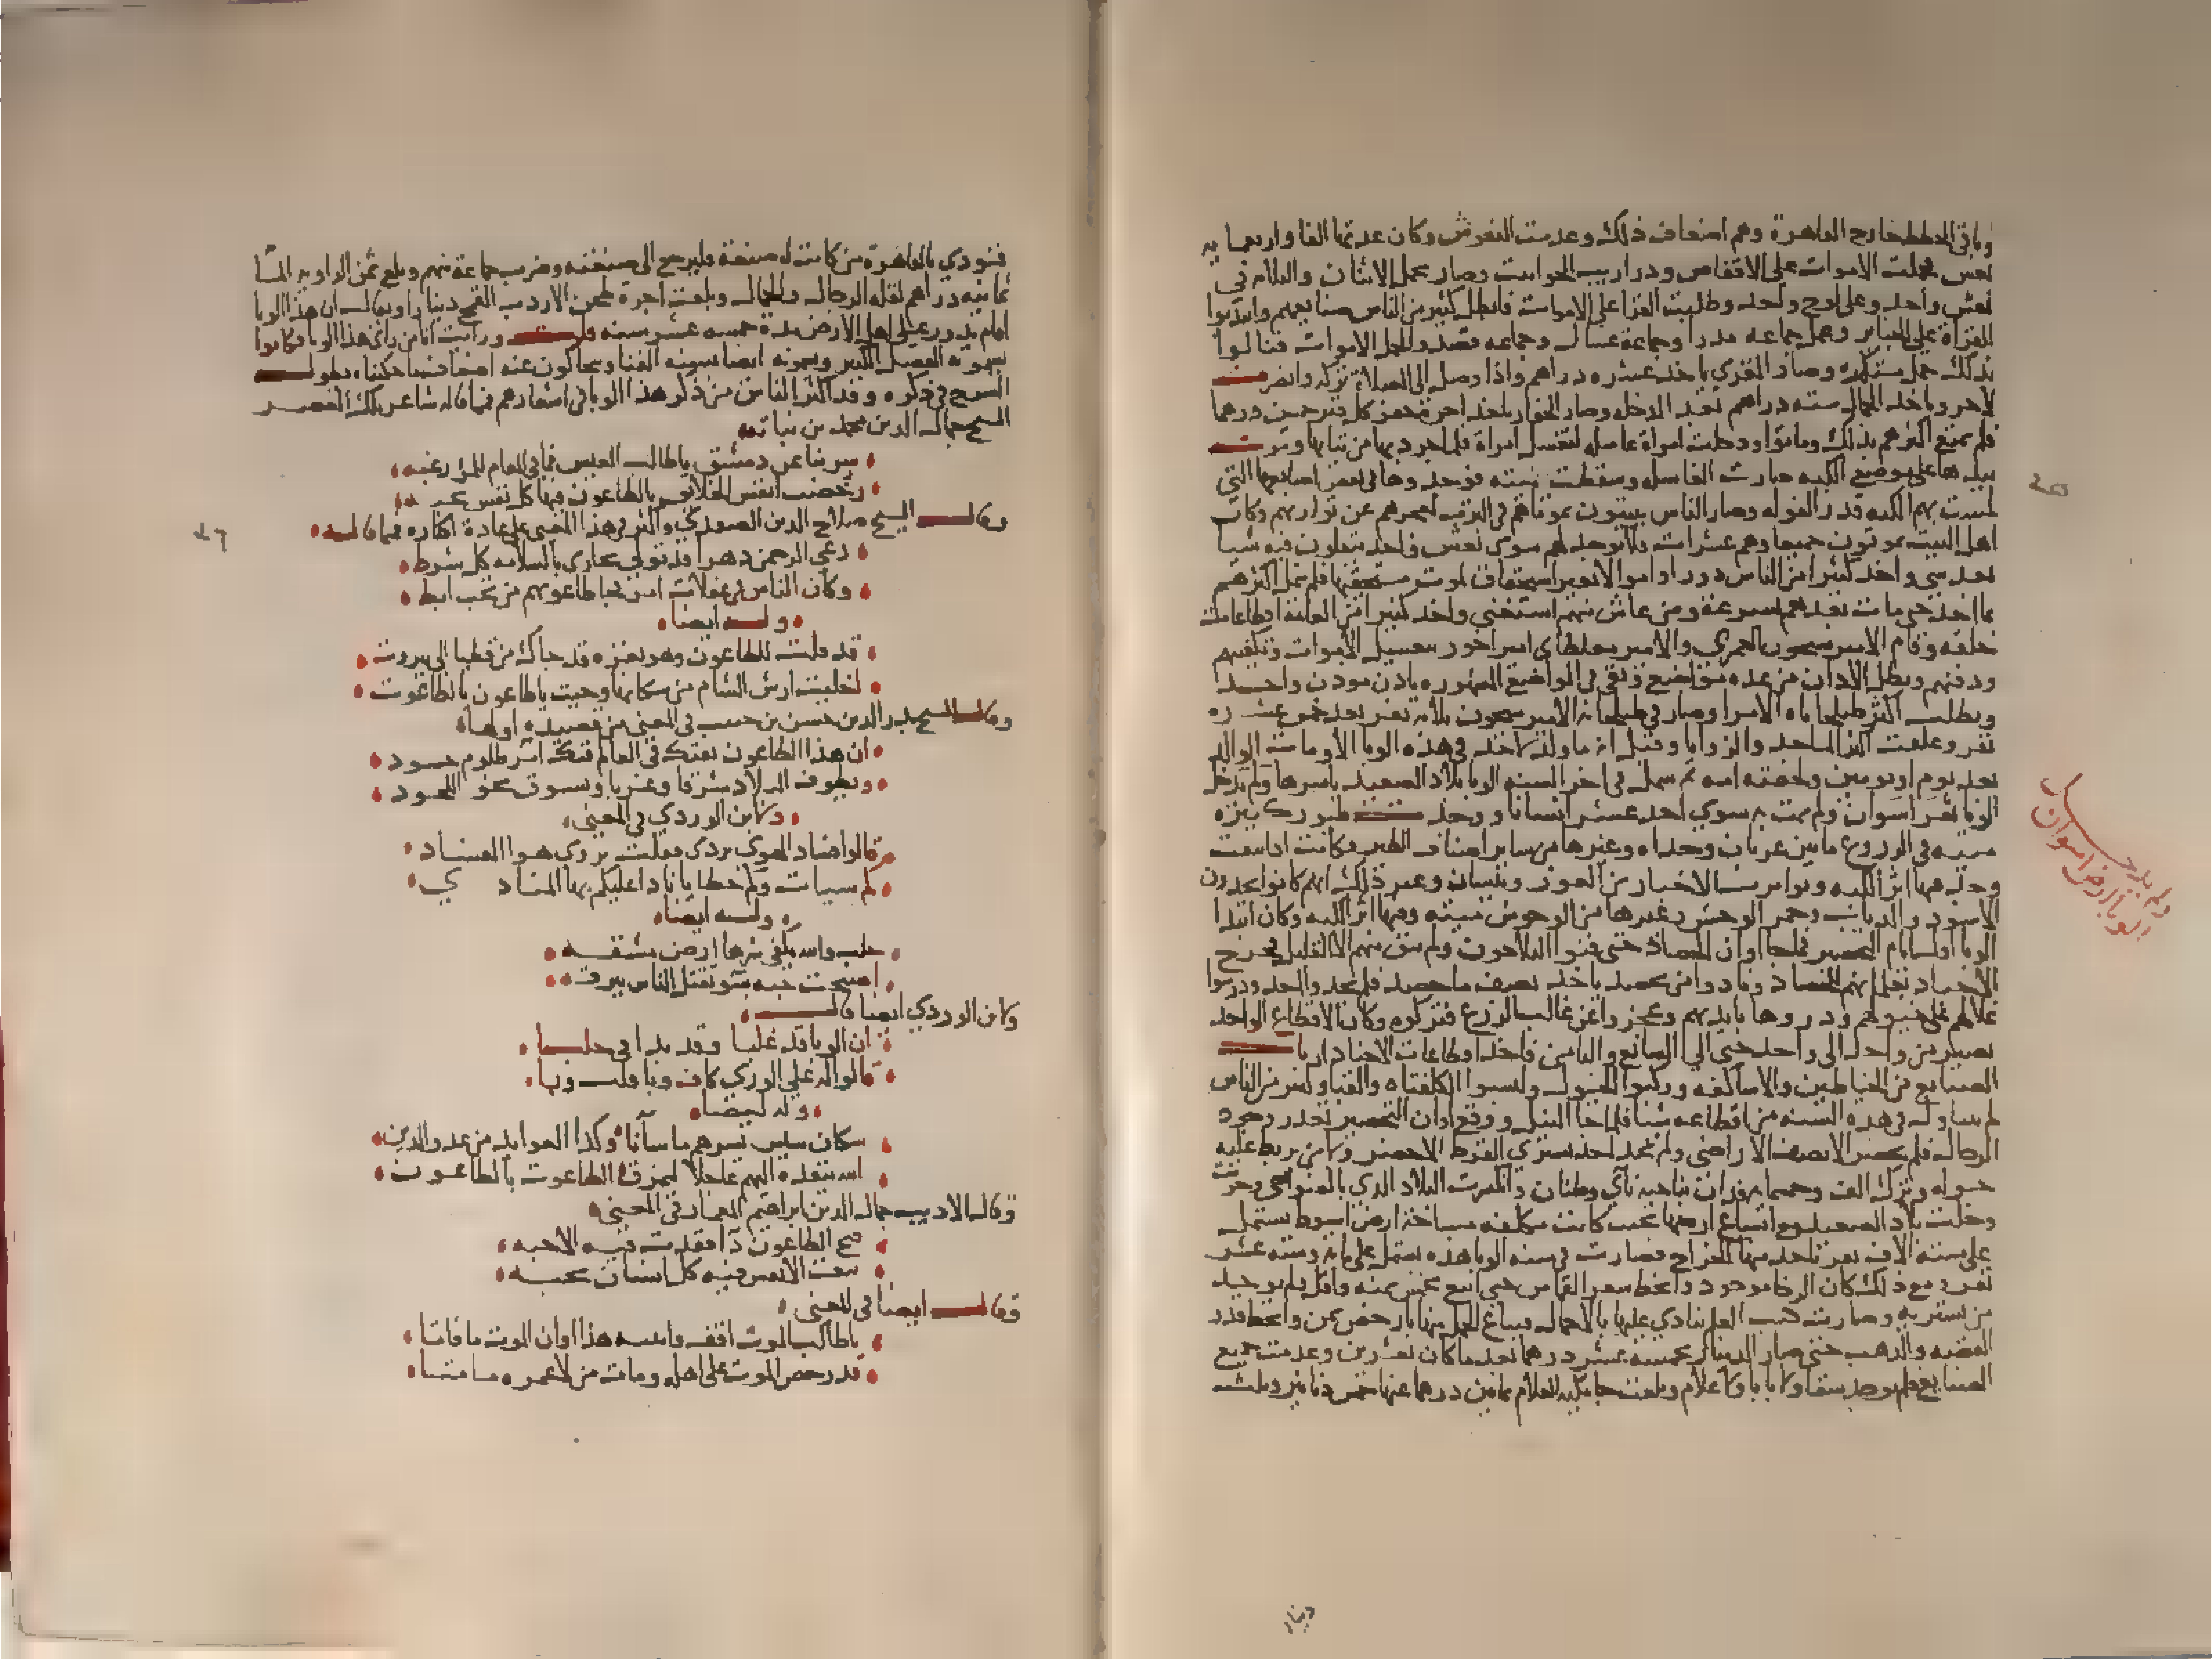 وباقي الخطط خارج القاهرة وهم اضعاف ذلك وعدمت النعوش وكان عدتها الفا واربعمايه
نعش فحملت الاموات على الاقفاص ودراريب الحوانيت وصار يحمل الاثنان والثلاثه في
نعش واحد وعلى لوح واحد وطلبت القرا على الاموات فابطل كثير من الناس صنايعهم وانتدبوا
للقراة على الجنايز وعمل جماعه مدرا وجماعة غسال وجماعه تصدوا لحمل الاموات فنالوا
بذلك جمل مستكثره وصار المقري ياخذ عشره دراهم واذا وصل الى الصلاة تركه وانصرف
لاخر وياخذ الحمال سته دراهم بعد الدخله وصار الحفار ياخذ اجرة حفر كل قبر خمسين درهما
فلم يمتع اكثرهم بذلك وماتوا ودخلت امراة غاسله لتغسل امراة فلما جردتها من ثيابها ومرت
بيدها على موضع الكبه صاحت الغاسله وسقطت ميته فوجدوها في بعض اصابعها التي
لمست بهم الكبه قدر الفوله وصار الناس يبيتون بموتاهم في الترب لعجزهم عن تواريهم وكان
اهل البيت يموتون جميعا وهم عشرات فلا يوجد لهم سوى نعش واحد ينقلون فيه شيا
بعد شي واخذ كثير من الناس دورا واموالا بغير استحقاق لموت مستحقيها فلم يتمل اكثرهم
بما اخذ حتى مات بعدهم بسرعة ومن عاش منهم استغنى واخذ كثير من العامه اقطاعات
حلقه وقام الامير شيخون العمري والامير مغلطاي امير اخور بتغسيل الاموات وتكفينهم
ودفنهم وبطل الاذان من عده مواضع وبقي في المواضع المشهوره باذان موذن واحد
وبطلت اكثر طبلخاناه الامرا وصار في طبلخاناه الامير شيخون ثلاثه نفر بعد خمس عشره
نفر وغلقت اكثر المساجد والزوايا وقيل انه ما ولد لاحد في هذه الوبا الا ومات الولد
بعد يوم او يومين ولحقته امه ثم شمل في اخر السنه الوبا بلاد الصعيد باسرها ولم يدخل
الوبا ثغر اسوان ولم يمت به سوى احد عشر انسانا ووجدت طيور كثيره
ميته في الزروع ما بين غربان وحداه وغيرها من ساير اصناف الطير وكانت اذا نتفت
وجد فيها اثر الكبه وتواترت الاخبار من الغور وبيسان وغير ذلك انهم كانوا يجدون
الاسود والدياب وحمر الوحش وغيرها من الوحوش ميته وفيها اثر الكبه وكان ابتدا
الوبا اول ايام التخضير فلما جا اوان الحصاد حتى فنوا الفلاحون ولم يبق منهم الا القليل فخرج
الاجناد بغلمانهم للحصاد ونادوا من يحصد ياخذ نصف ما حصد فلم يجد واحد ودرسوا
غلالهم على خيولهم وذروها بايديهم وعجزوا عن غالب الزرع فتركوه وكان الاقطاع الواحد
يصير من واحد الى واحد حتى الى السابع والثامن فاخذ اقطاعات الاجناد ارباب
الصنايع من الخياطين والاساكفه وركبوا الخيول ولبسوا الكلفتاه والقبا وكثير من الناس
لم يتناول في هذه السنه من اقطاعه شيا فلما جا النيل ووقع اوان التخضير تعذر وجود
الرجال فلم يخضر الا نصف الاراضي ولم يوجد احد يشتري القرط الاخضر ولا من يربط عليه
خيوله وترك الف وخمسمايه فدان بناحيه ناي وطنان وانكسرت البلاد الذي بالضواحي وخربت
وخلت بلاد الصعيد مع اتساع ارضها بحيث كانت مكلفه مساحة ارض اسيوط يشتمل
على سته الاف نفر تاخذ منها الخراج فصارت في سنه الوبا هذه تشتمل على مايه وسته عشر
نفر ومع ذلك كان الرخا موجود وانحط سعر القماش حتى ابيع بخمس ثمنه واقل ولم يوجد
من يشتريه وصارت كتب العلم ينادي عليها بالاحمال فيباع الحمل منها بارخص ثمن وانحط قدر
الفضه والذهب حتى صار الدينار بخمسه عشر درهما بعد ما كان بعشرين وعدمت جميع
الصنايع فلم يوجد سقا ولا بابا ولا غلام وبلغت جامكيه الغلام ثمانين درهما عنها خمس دنانير وثلث
دينار
ولم يدخل
الوبا ارض اسوان
فنودي بالقاهرة من كانت له صنعة فليرجع الى صنعته وضرب جماعة منهم وبلغ ثمن الراويه الما
ثمانيه دراهم لقله الرجال والجمال وبلغت اجرة طحن الاردب القمح دينارا ويقال ان هذا الوبا
اقام يدور على اهل الارض مدة خمسه عشر سنه قلت ورايت انا من راى هذا الوبا فكانوا
يسمونه الفصل الكبير ويسمونه ايضا سنه الفنا ويحاكون عنه اضعاف ما حكيناه يطول
الشرح في ذكره وقد اكثر الناس من ذكر هذا الوبا في اشعارهم فمما قاله شاعر ذلك العصر
الشيخ جمال الدين محمد بن نباته
سر بنا عن دمشق يا طالب العيش فما في المقام للمرء رغبه
رخصت انفس الخلايق بالطاعون فيها كل نفس بحبه
وقال الشيخ صلاح الدين الصفدي واكثر في هذا المعنى على عادة اكثاره فمما قاله
رعى الرحمن دهرا قد تولى يحاري بالسلامه كل شرط
وكان الناس في غفلات امن فجا طاعونهم من تحت ابط
وله ايضا
قد قلت للطاعون وهو بغزه قد جاك من قطيا الى بيروت
اخليت ارض الشام من سكانها وحيت يا طاعون بالطاغوت
وقال الشيخ بدر الدين حسن بن حبيب في المعنى من قصيده اولها
ان هذا الطاعون يفتك في العالم فتك امر ظلوم حسود
ويطوف البلاد شرقا وغربا ويسوق نحو اللحود
ولابن الوردي في المعنى
قالوا فساد الهوى يردي فقلت يردي هوا الفساد
كم سيات وكم خطايا نادا عليكم بها المنادي
وله ايضا
حلب والله يكفي شرها ارض مشقه
اصبحت حيه سو تقتل الناس ببزقه
ولابن الوردي ايضا قال
ان الوبا قد غلبا وقد بدا في حلبا
قالوا له على الورى كاف وبا قلت وبا
وله ايضا
سكان سيس يسرهم ما ساانا وكذا العوايد من عدو الدين
الله ينقذه اليهم عاجلا ليمزق الطاغوت بالطاعون
وقال الاديب جمال الدين ابراهيم المعمار في المعنى
قبح الطاعون دا فقدت فيه الاحبه
بيعت الانفس فيه كل انسان بحبه
وقال ايضا في المعنى
يا طالب الموت افق وانتبه هذا اوان الموت ما فاتا
قد رخص الموت على اهله ومات من لا عمره ماتا